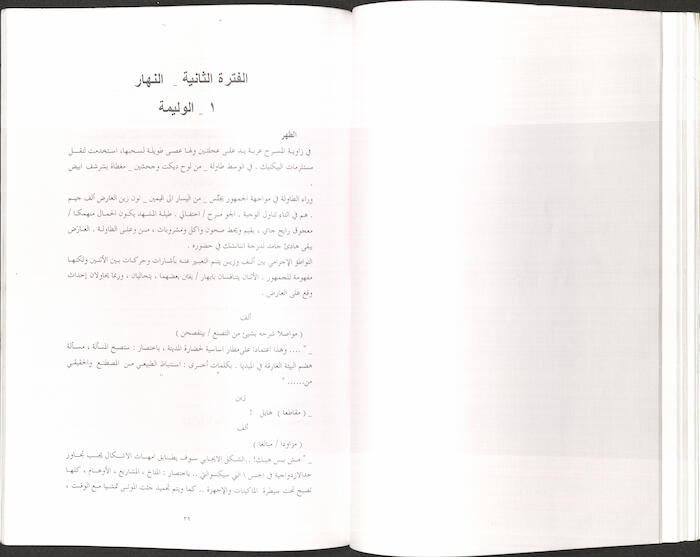 الفترة الثانية _ النهار
١ _ الوليمة
الظهر
في زاوية المسرح عربة يد على عجلتين ولها عصى طويلة لسحبها، استخدمت لنقل
مستلزمات البيكنيك . في الوسط طاولة _ من لوح ديكت وجحشين _ مغطاة بشرشف ابيض
.
وراء الطاولة في مواجهة الجمهور يجلس _ من اليسار الى اليمين _ نون زين العارض ألف جيم
. هم في اثناء تناول الوجبة . الجو مرح / احتفالي . طيلة المشهد يكون الحمال منهمكا /
معجوق رايح جاي ، يقيم ويحط صحون واكل ومشروبات ، من وعلى الطاولة . العارض
يبقى هادئ جامد لدرجة انناننشك في حضوره .
التواطؤ الإجرامي بين ألف وزين يتم التعبير عنه بأشارات وحركات بين الأثنين ولكنها
مفهومة للجمهور . الأثنان يتنافسان بابهار / بفتن بعضهما ، يتحاليان ، وربما يحاولان إحداث
وقع على العارض .
ألف
( مواصلا شرحه بشيئ من التصنع / بيتفصحن )
_ " .... وهذا اعتمادا على مطار اساسية لحضارة المدينة ، باختصار : ستصبح المسألة ، مسألة
هضم البيئة الغارقة في الميديا . بكلمات أخرى : استنباط الطبيعي من المصطنع والحقيقي
من...... "
زين
_ ( مقاطعا ) هايل !
ألف
( مزاودا / مبالغا )
_ " مش بس هيك! ..الشكل الايجابي سوف يطابق امهات الاشكال يجب تجاوز
حدالازدواجية في الجنس \ الي سيكسواليتي .. باختصار : المناخ ، المشاريع ، الأوهام ، كلها
تصبح تحت سيطرة الماكينات والاجهزة .. كما ويتم تجميد جثث الموتى تمشيا مع الوقت ،
٣٦